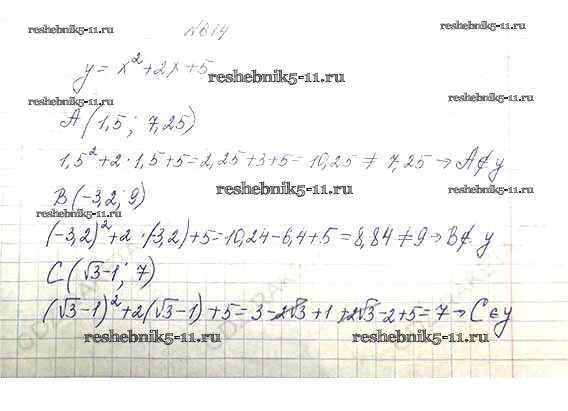 №614
reshebnik5-11.ru reshebnik5-11.ru
y = x²+2x+5
reshebnik5-11.ru
reshebnik5-11.ru reshebnik5-11.ru
A (1,5; 7,25)
1,5²+2·1,5+5=2,25+3+5=10,25≠7,25→A∉y
B(-3,2; 9) reshebnik5-11.ru
reshebnik5-11.ru reshebnik5-11.ru
(-3,2)²+2·(-3,2)+5=10,24-6,4+5=8,84≠9→B∉y
C (√3-1; 7)
(√3-1)²+2(√3-1)+5=3-2√3+1+2√3-2+5=7→C∈y
reshebnik5-11.ru reshebnik5-11.ru